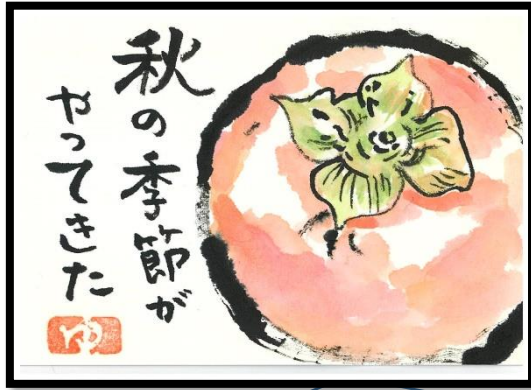 秋の季節が
やってきた
ゆ